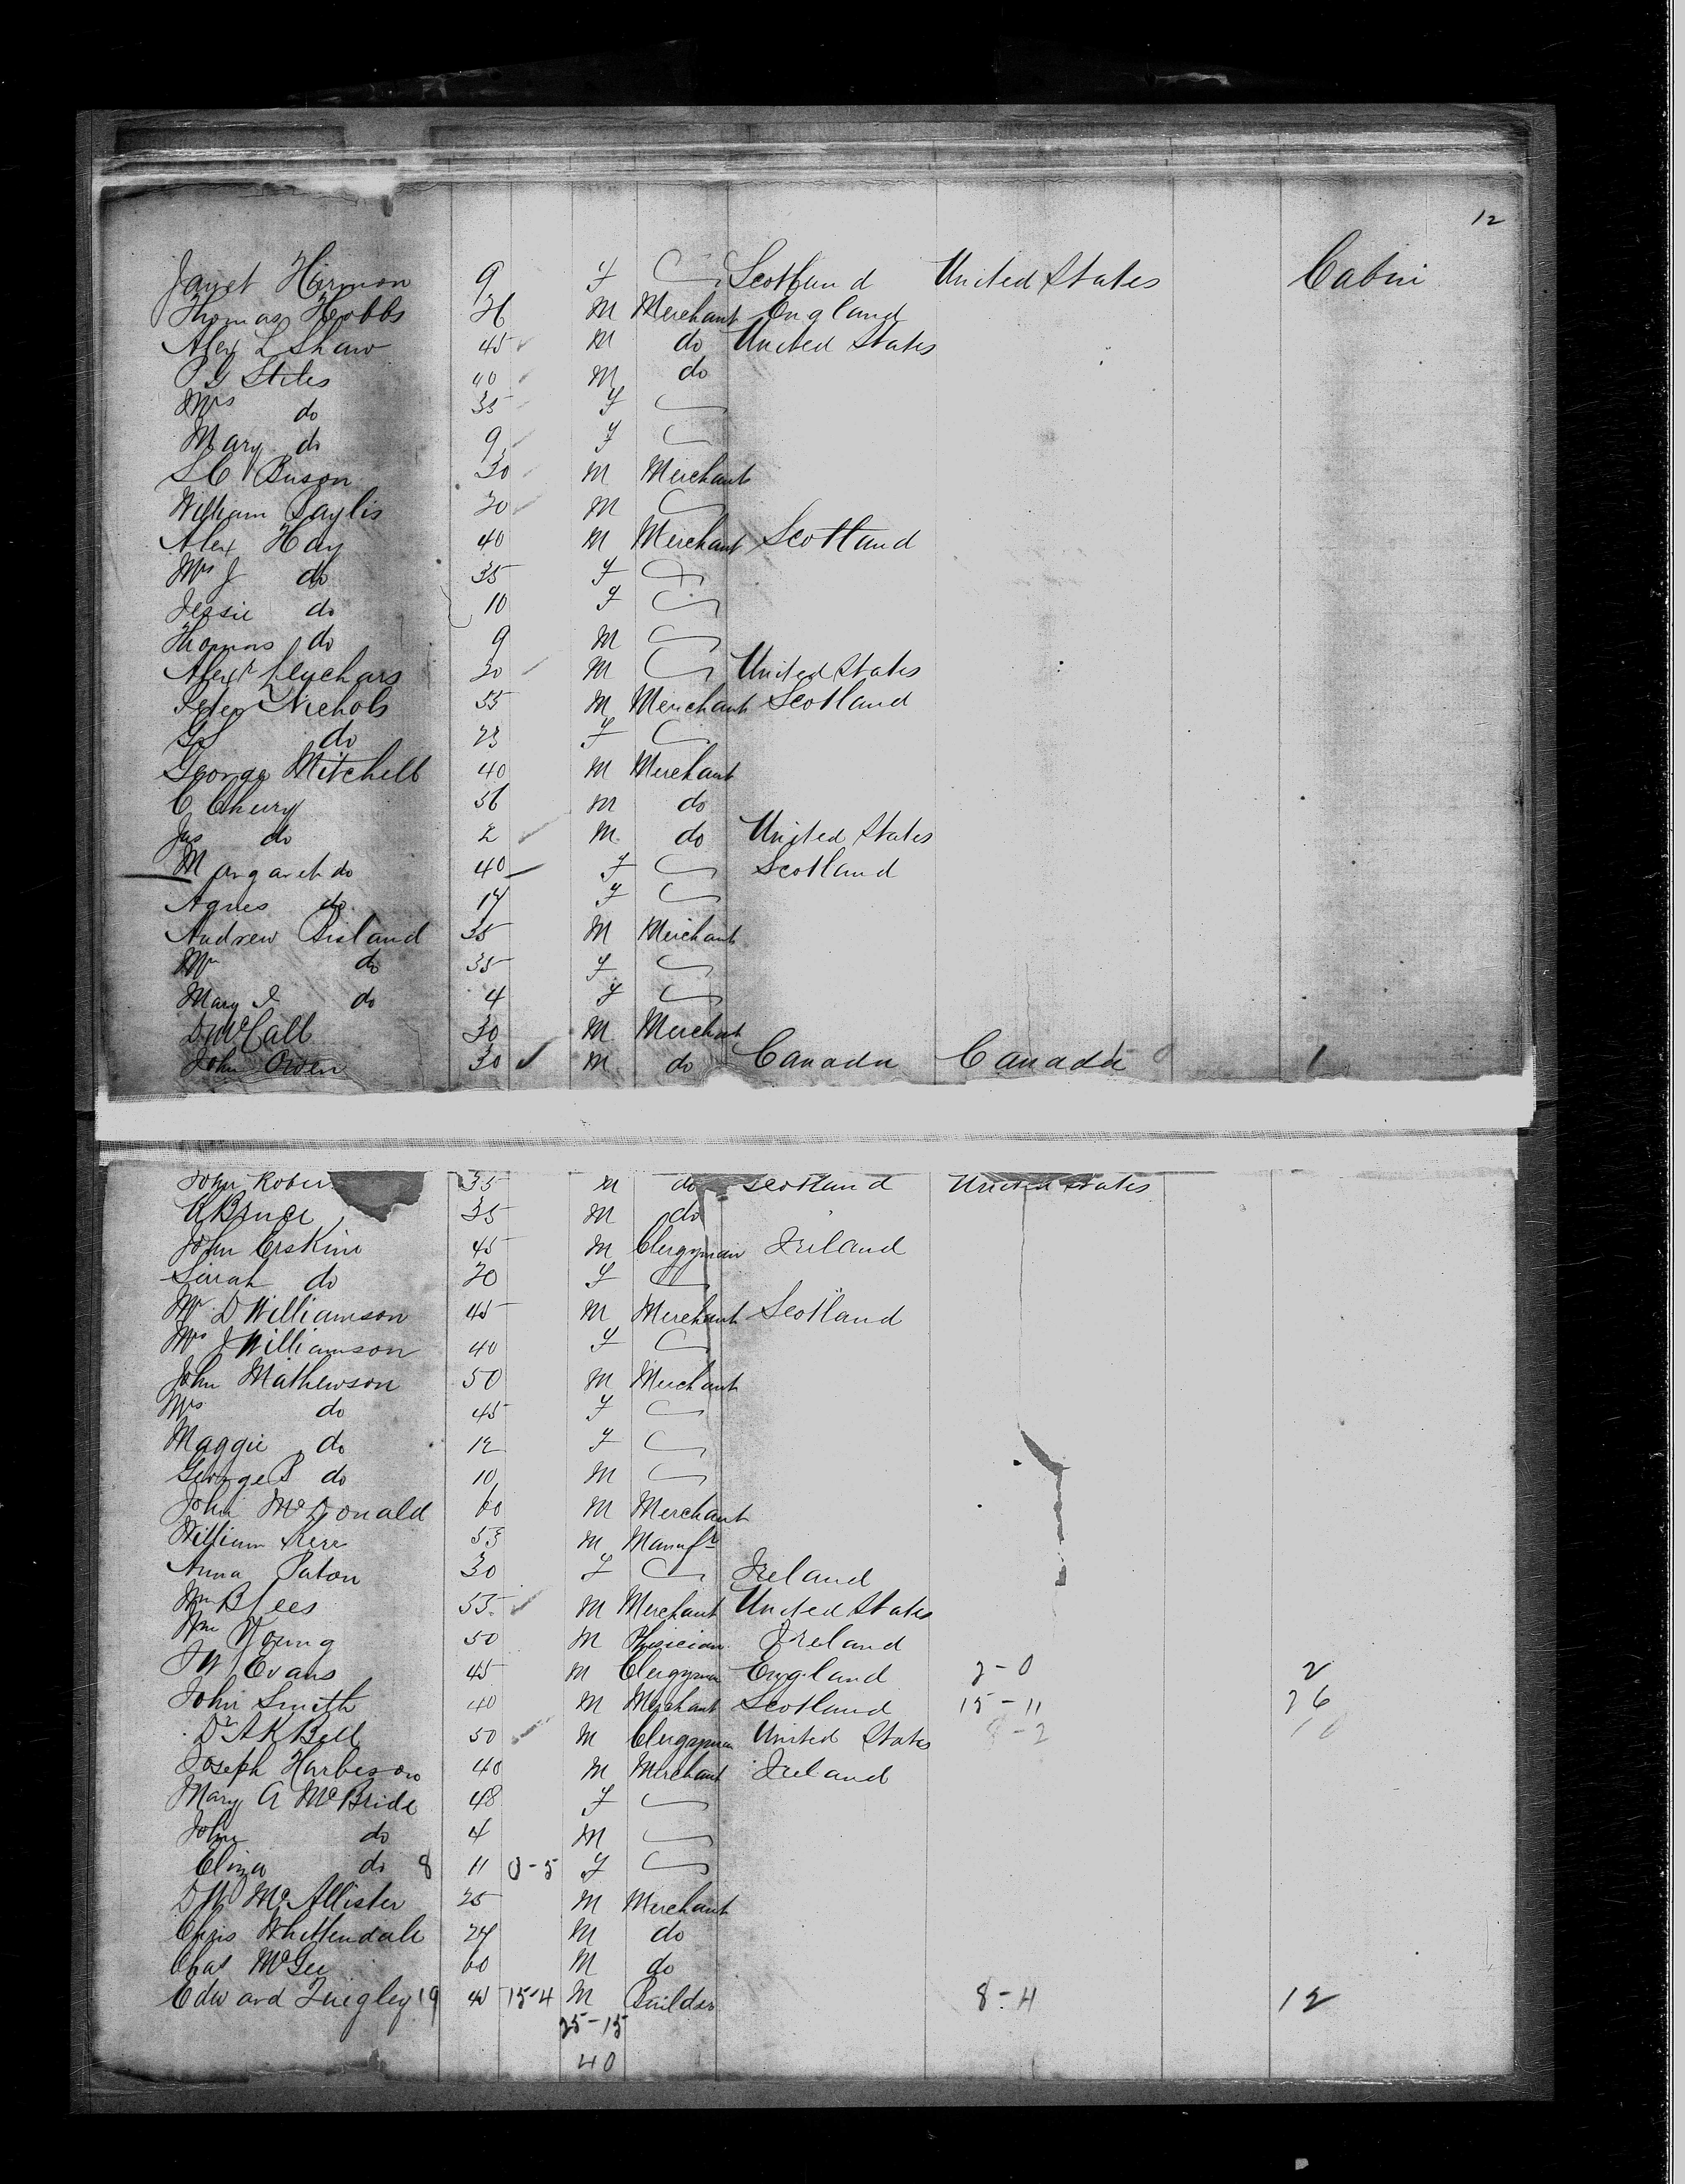 12
Janet Harmon 9 F Scotland United States Cabin
Thomas Hobbs 36 M Merchant England
Alex L Shaw 45 M do United States
P G Stiles 40 M do
Mrs do 35 F
Mary do 9 F
S C Buson 30 M Merchant
William Baylis 20 M
Alex Hay 40 M Merchant Scotland
Mrs J do 35 F
Jessie do 10 F
Thomas do 9 M
Alexr Leuchars 30 M United States
Peter Nichols 55 M Merchant Scotland
do 23 F
George Mitchell 40 M Merchant
C Cheury 36 M do
Jas do 2 M do United States
Margaret do 40 F Scotland
Agnes do 14 F
Andrew Bisland 35 M Merchant
Mrs do 35 F
Mary I do 4 F
D McCall 30 M Merchant
John Owen 30 M do Canada Canada 1
John Rober 35 M do Scotland United States
A Bruce 35 M do
John Erskine 45 M Clergyman Ireland
Sarah do 20 F
Mr D Williamson 45 M Merchant Scotland
Mrs J Williamson 40 F
John Mathewson 50 M Merchant
Mrs do 45 F
Maggie do 12 F
George B do 10 M
John McDonald 60 M Merchant
William Kerr 53 M Manufr
Anna Paton 30 F Ireland
Wm B Lees 53 M Merchant United States
Wm Young 50 M Physician Ireland
J W Evans 45 M Clergyman England 2-0 2
John Smith 40 M Merchant Scotland 15-11 26
Dr A K Bell 50 M Clergyman United States 8-2 10
Joseph Harbeson 40 M Merchant Ireland
Mary A McBride 48 F
John do 4 M
Eliza do 8 11 0-5 F
D W McAllister 25 M Merchant
Chris Whittendale 24 M do
Chas McGee 60 M do
Edward Quigley 19 45 15-4 M Builder 8-4 12
25-15
40